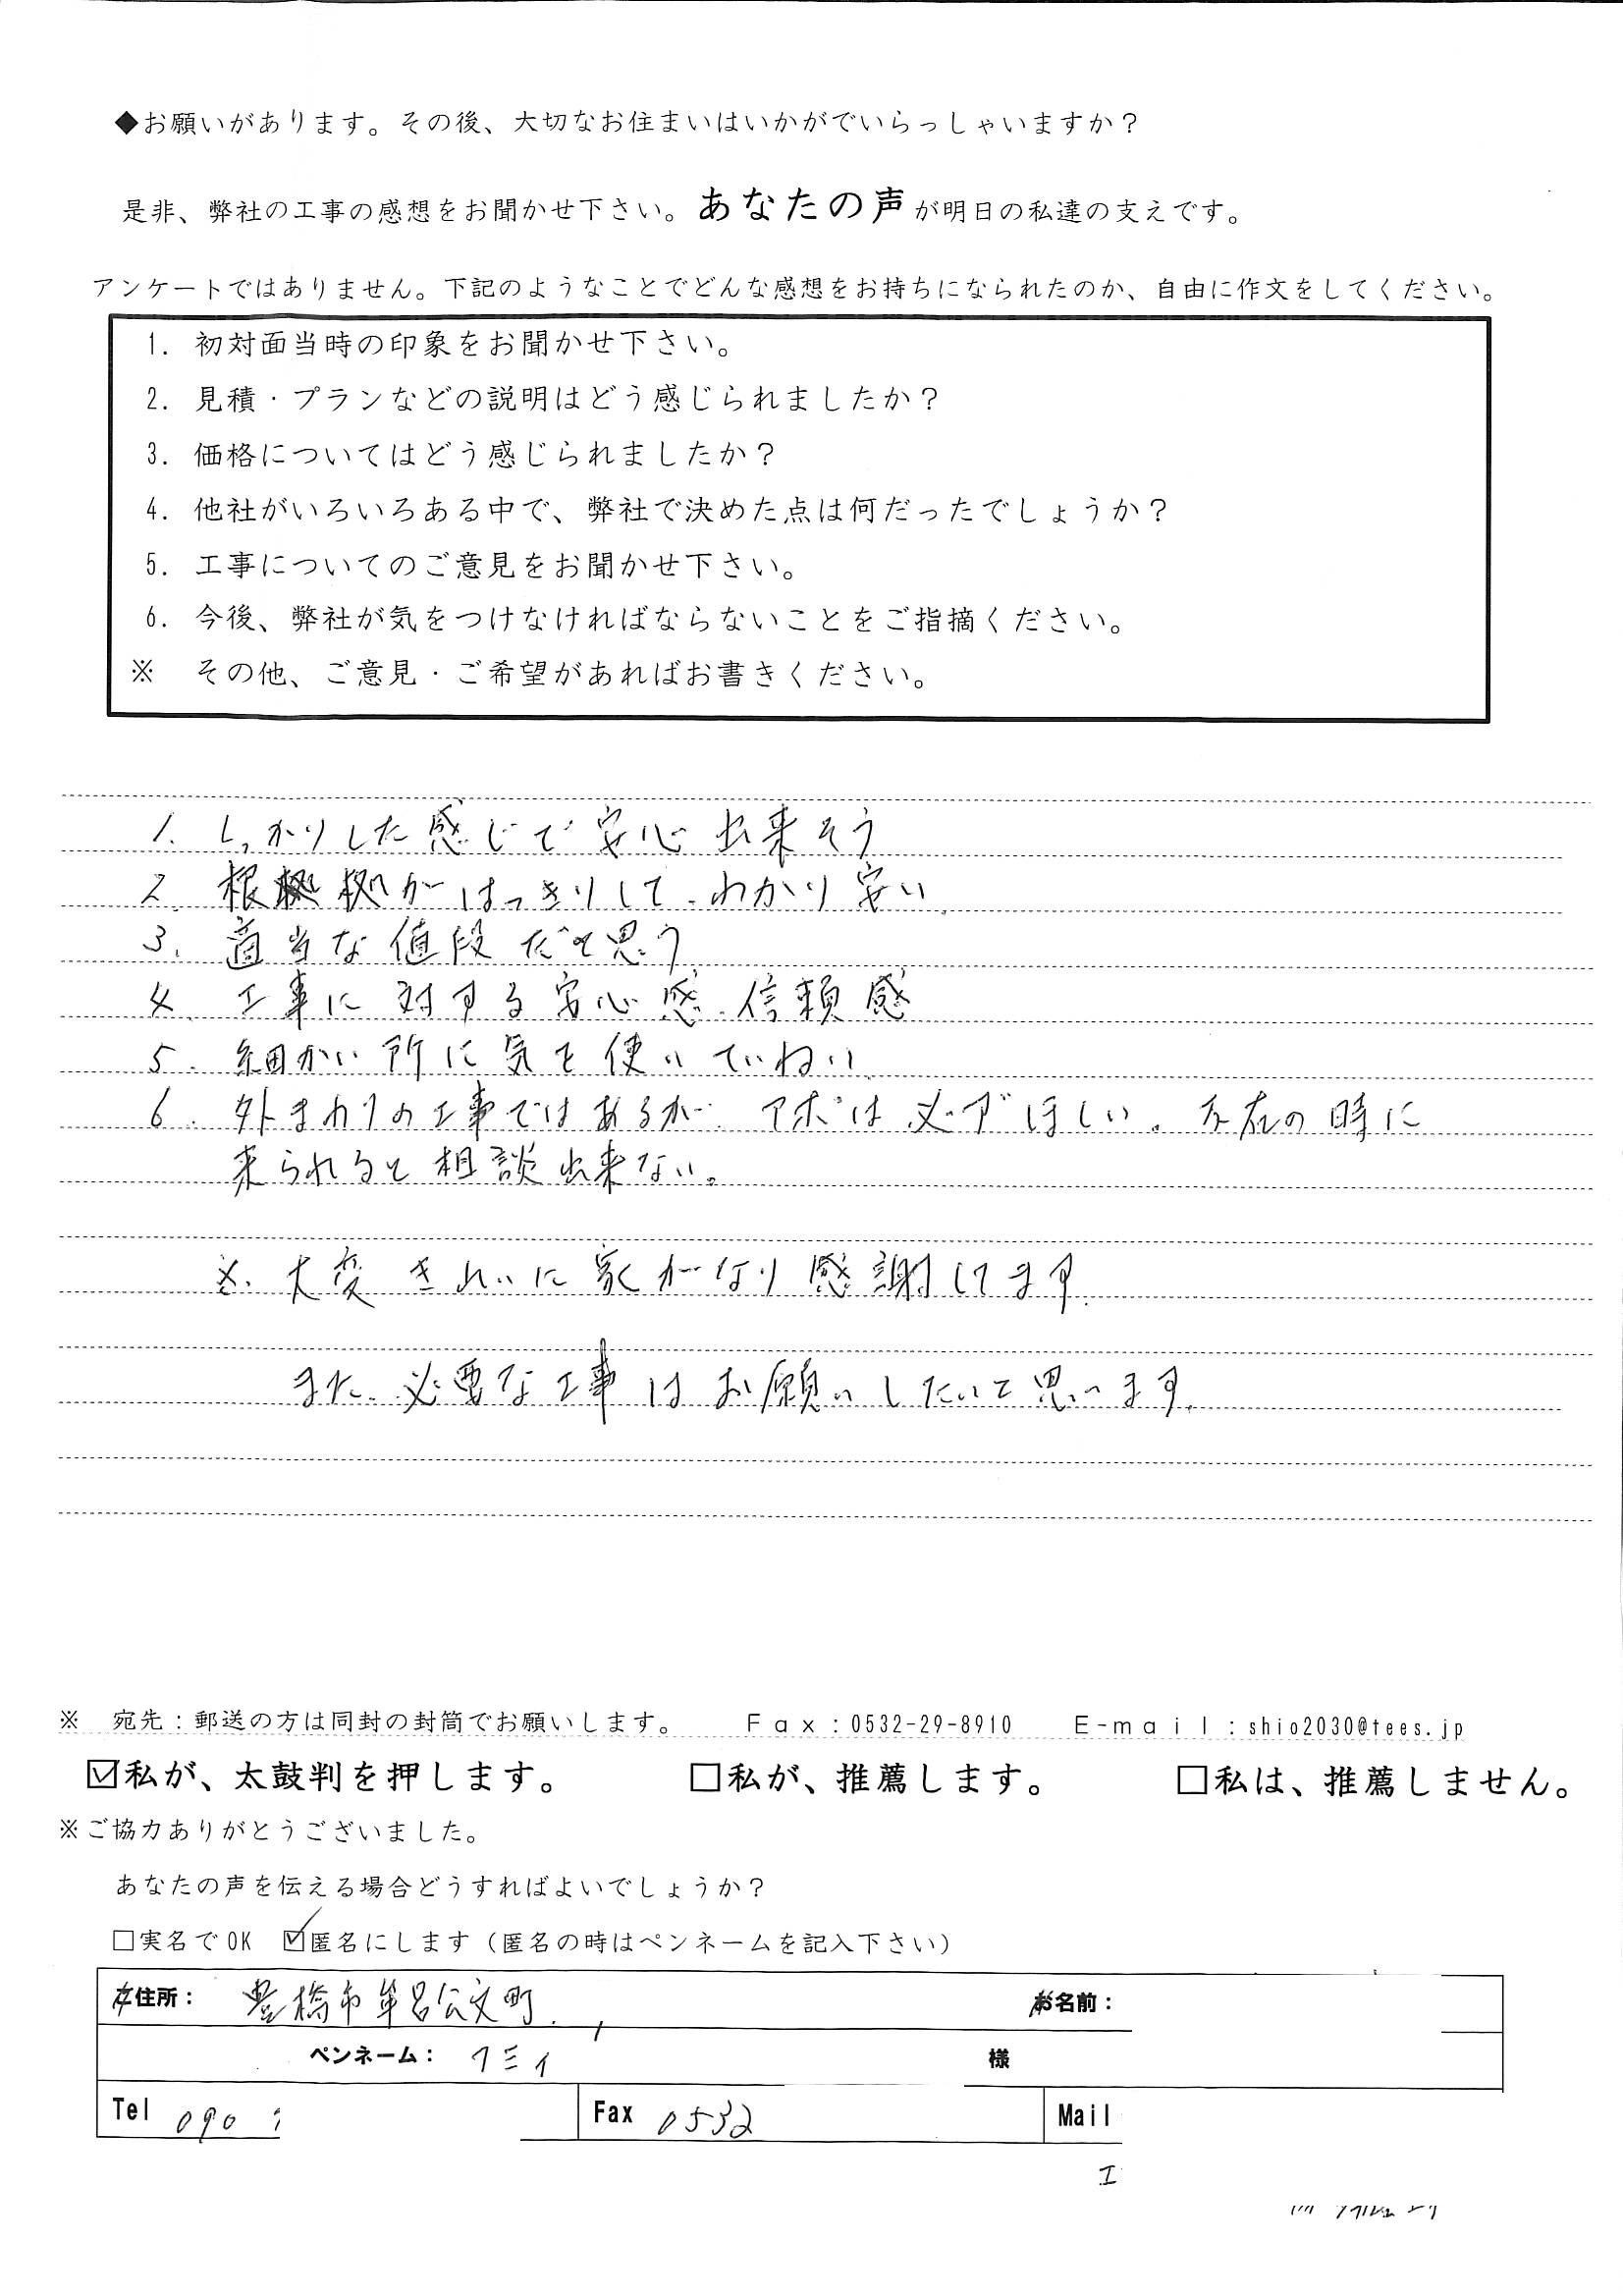 ◆お願いがあります。その後、大切なお住まいはいかがでいらっしゃいますか？
是非、弊社の工事の感想をお聞かせ下さい。あなたの声が明日の私達の支えです。
アンケートではありません。下記のようなことでどんな感想をお持ちになられたのか、自由に作文をしてください。
1. 初対面当時の印象をお聞かせ下さい。
2. 見積・プランなどの説明はどう感じられましたか？
3. 価格についてはどう感じられましたか？
4. 他社がいろいろある中で、弊社で決めた点は何だったでしょうか？
5. 工事についてのご意見をお聞かせ下さい。
6. 今後、弊社が気をつけなければならないことをご指摘ください。
※ その他、ご意見・ご希望があればお書きください。
1. しっかりした感じで安心出来そう
2. 根拠がはっきりして、わかり安い
3. 適当な値段だと思う
4. 工事に対する安心感、信頼感
5. 細かい所に気を使いていねい
6. 外まわりの工事ではあるが、アポは必ずほしい。不在の時に
来られると相談出来ない。
※. 大変きれいに家がなり感謝してます.
また、必要な工事はお願いしたいと思います.
※ 宛先：郵送の方は同封の封筒でお願いします。 Fax：0532-29-8910 E-mail：shio2030@tees.jp
☑私が、太鼓判を押します。 □私が、推薦します。 □私は、推薦しません。
※ご協力ありがとうございました。
あなたの声を伝える場合どうすればよいでしょうか？
□実名でOK ☑匿名にします（匿名の時はペンネームを記入下さい）
住所： 豊橋市牟呂公文町 お名前：
ペンネーム： クミイ 様
Tel 090 Fax 0532 Mail